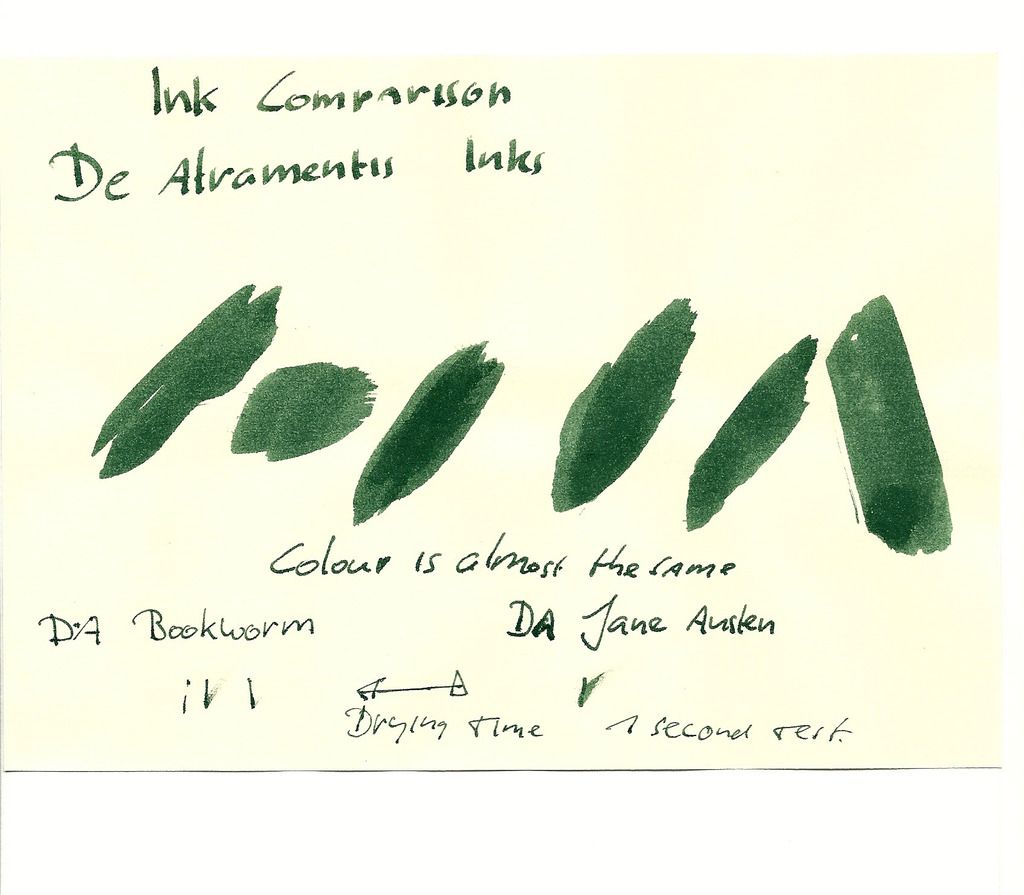 Ink Comparison
De Atramentis Inks
Colour is almost the same
DA Bookworm DA Jane Austen
Drying time 1 second test.